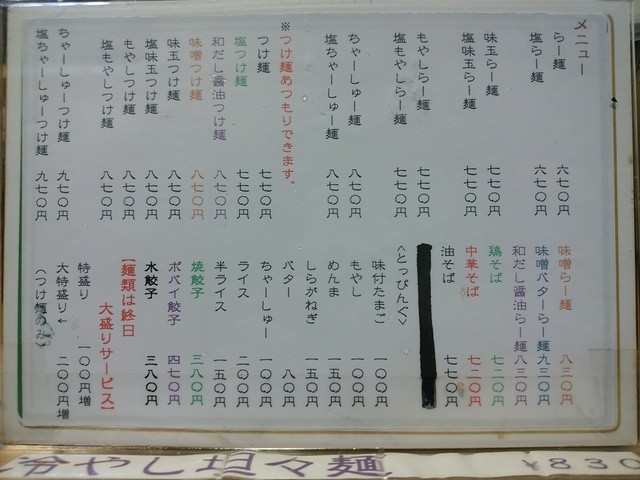 メニュー
らー麺 六七〇円
塩らー麺 六七〇円
味玉らー麺 七七〇円
塩味玉らー麺 七七〇円
もやしらー麺 七七〇円
塩もやしらー麺 七七〇円
ちゃーしゅー麺 八七〇円
塩ちゃーしゅー麺 八七〇円
※つけ麺あつもりできます。
つけ麺 七七〇円
塩つけ麺 七七〇円
和だし醤油つけ麺 八七〇円
味噌つけ麺 八七〇円
味玉つけ麺 八七〇円
塩味玉つけ麺 八七〇円
もやしつけ麺 八七〇円
塩もやしつけ麺 八七〇円
ちゃーしゅーつけ麺 九七〇円
塩ちゃーしゅーつけ麺 九七〇円
味噌らー麺 八三〇円
味噌バターらー麺 九三〇円
和だし醤油らー麺 八三〇円
鶏そば 七二〇円
中華そば 七二〇円
油そば 七七〇円
<とっぴんぐ>
味付たまご 一〇〇円
もやし 一〇〇円
めんま 一五〇円
しらがねぎ 一五〇円
バター 八〇円
ちゃーしゅー 二〇〇円
ライス 二〇〇円
半ライス 一五〇円
焼餃子 三八〇円
ポパイ餃子 四七〇円
水餃子 三八〇円
【麺類は終日
大盛りサービス】
特盛り 一〇〇円増
大特盛り← 二〇〇円増
(つけ麺のみ)
冷やし坦々麺 ¥830